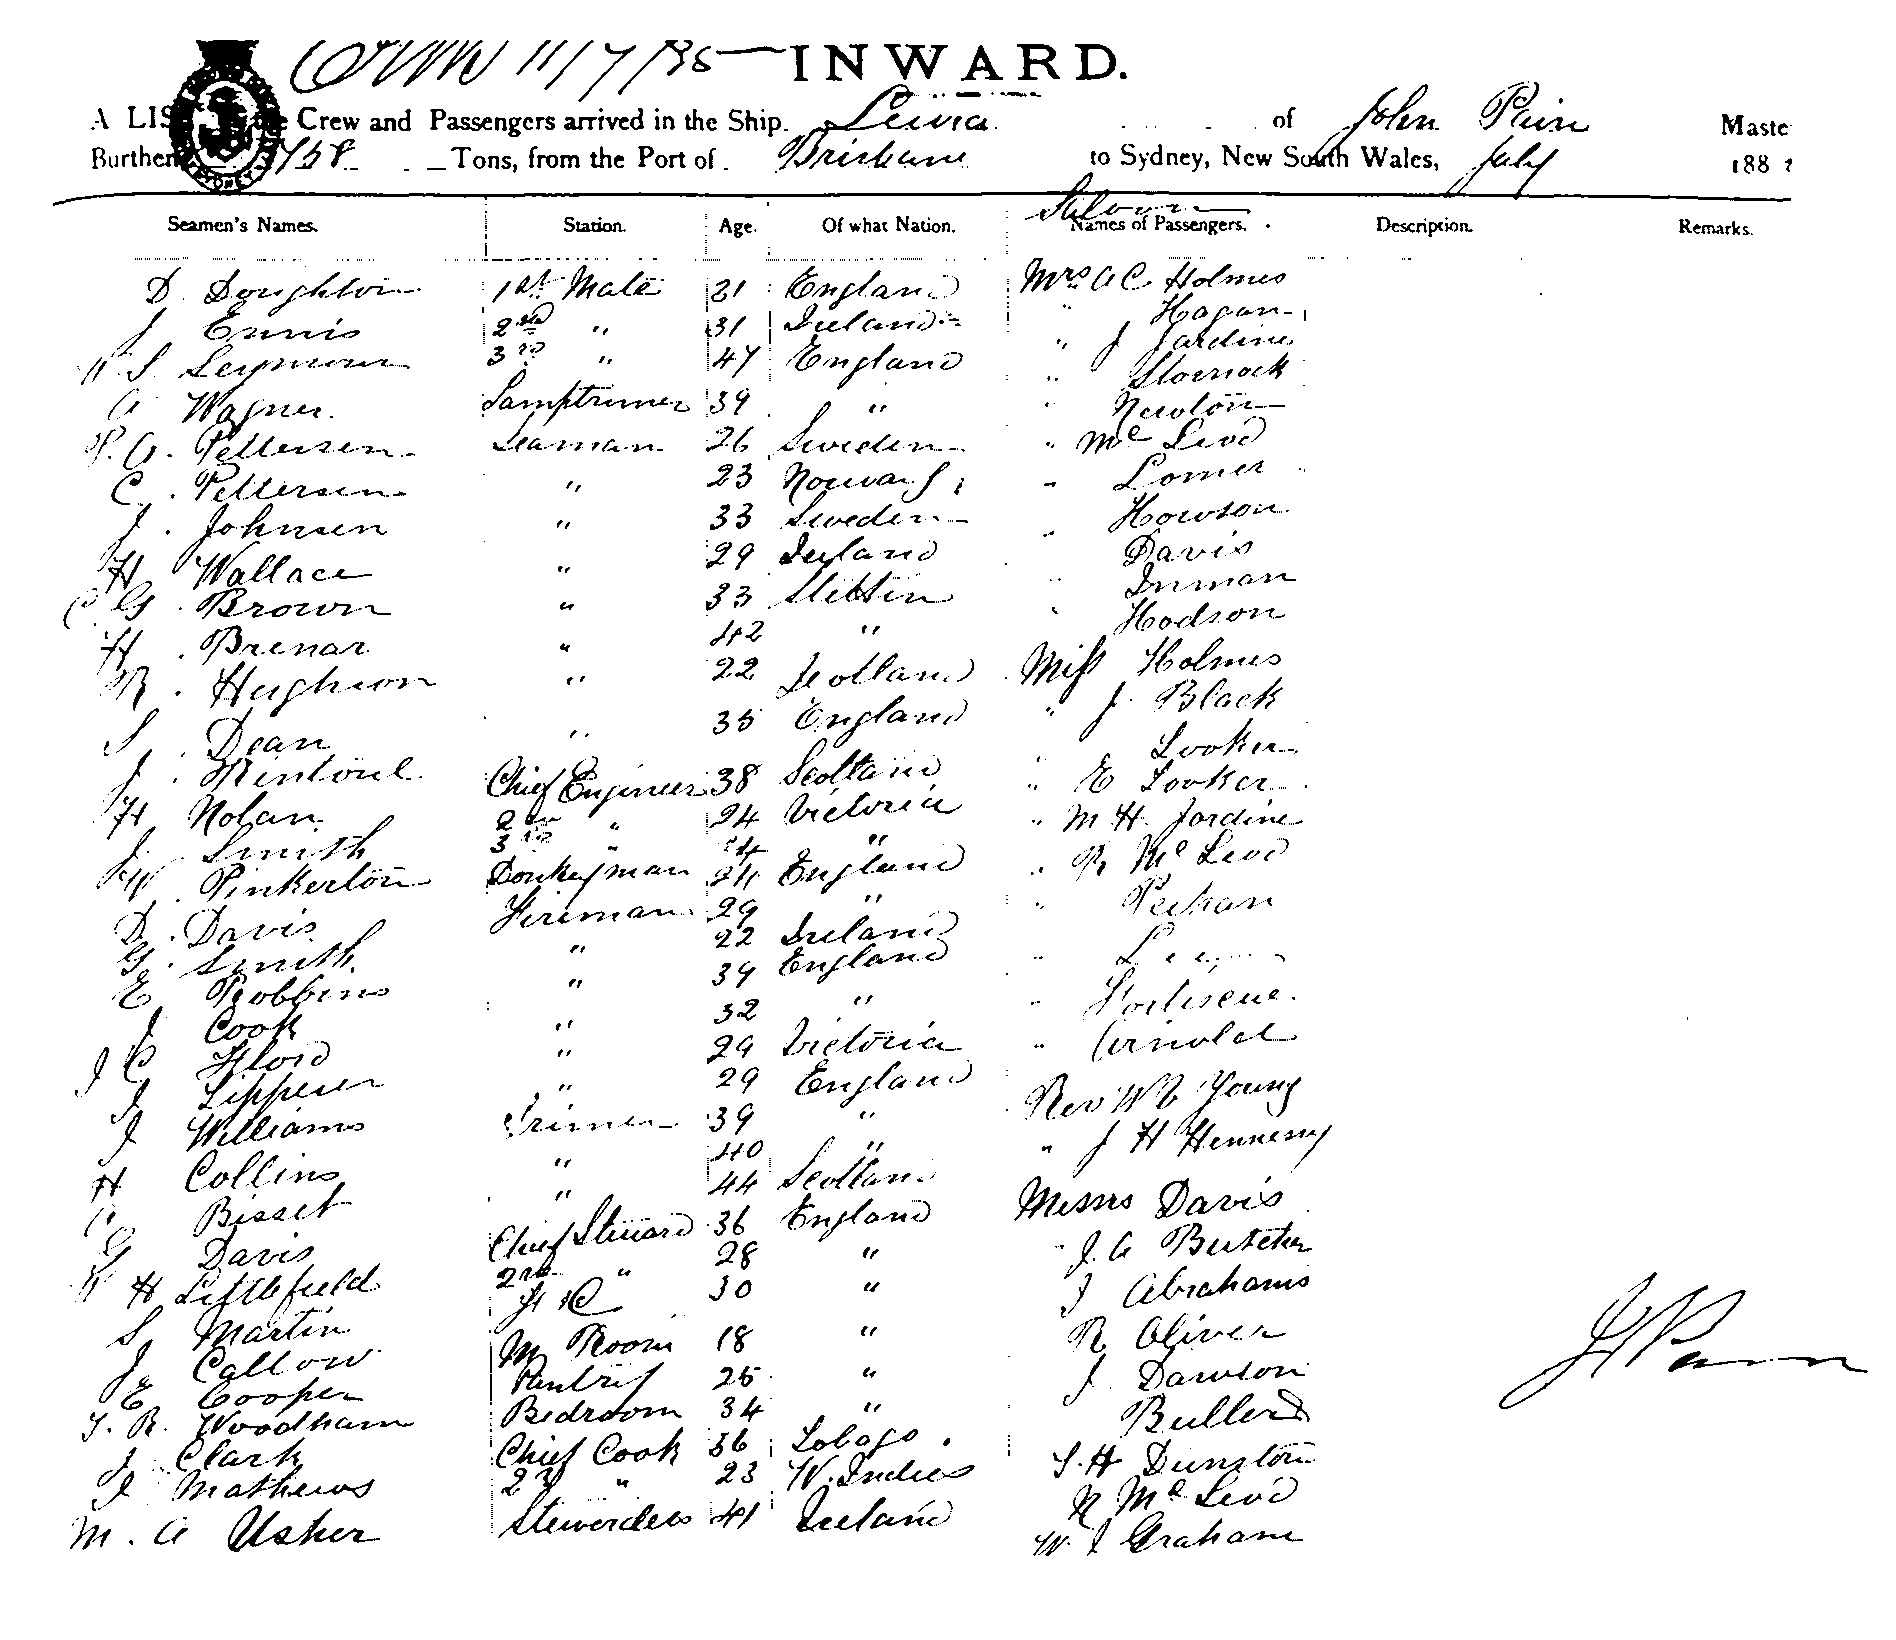 11/7/85 INWARD.
A LIS Crew and Passengers arrived in the Ship of John Pain Maste
Burthen 758 Tons, from the Port of Brisbane to Sydney, New South Wales, July 188
Saloon
Seamen's Names. Station. Age. Of what Nation. Names of Passengers. Description. Remarks.
D. Doughton 1st Mate 21 England Mrs A C Holmes
J Ennis 2nd " 31 Ireland " Hagan
W S Seymour 3rd " 47 England " J Jardine
A Wagner Lamptrimer 39 " "
P. A. Pettersen Seaman 26 Sweden " Newton
C. Pettersen " 23 Norway " Mc Leod
J. Johnsen " 33 Sweden " Lomer
H Wallace " 29 Ireland " Howson
C. G. Brown " 33 Stettin " Davis
H. Brenar " 42 " " Inman
R. Hughson " 22 Scotland " Hodson
S. Dean " 35 England Miss Holmes
J. Rintoul Chief Engineer 38 Scotland " J. Black
H Nolan 2nd " 24 Victoria " Looker
J. Smith 3rd " 24 " " E Looker
W. Pinkerton Donkeyman 24 England " M H Jardine
D. Davis Fireman 29 " " R Mc Leod
G. Smith " 22 Ireland "
E Robbins " 39 England "
J Cook " 32 " " Fortescue
J C Flood " 29 Victoria " Arnold
J " 29 England Rev W E Young
J Williams Trimer 39 " " J H Hennessy
H Collins " 40 "
C Bisset " 44 Scotland Messrs Davis
G Davis Chief Steward 36 England J. A Butcher
W H Littlefield 2nd " 28 " J Abrahams
S Martin 30 " R Oliver
J. Callow M Room 18 " J. Dawson
E Cooper Pantry 25 " Buller
T. R. Woodham Bedroom 34 " S. H Dunston
J Clark Chief Cook 36 Tobago R Mc Leod
J Mathews 2nd " 23 W. Indies
M. A Usher Stewardess 41 Ireland W. J Graham
J Pain